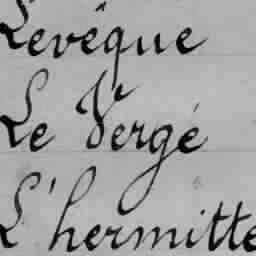 Levêque
Le Vergé
L'hermitte